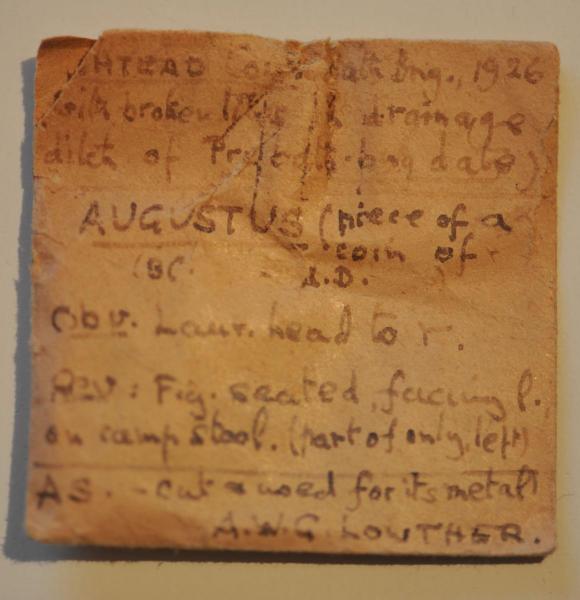 HTEAD Bath Bng., 1926
with broken tiles in drainage
ditch of bng date)
AUGUSTUS (piece of a
coin of
(BC. A.D. )
Obv. Laur. head to r.
Rev: Fig. seated, facing l.
on camp stool. (part of only, left)
AS. - cut & used for its metal
A.W.G. LOWTHER.